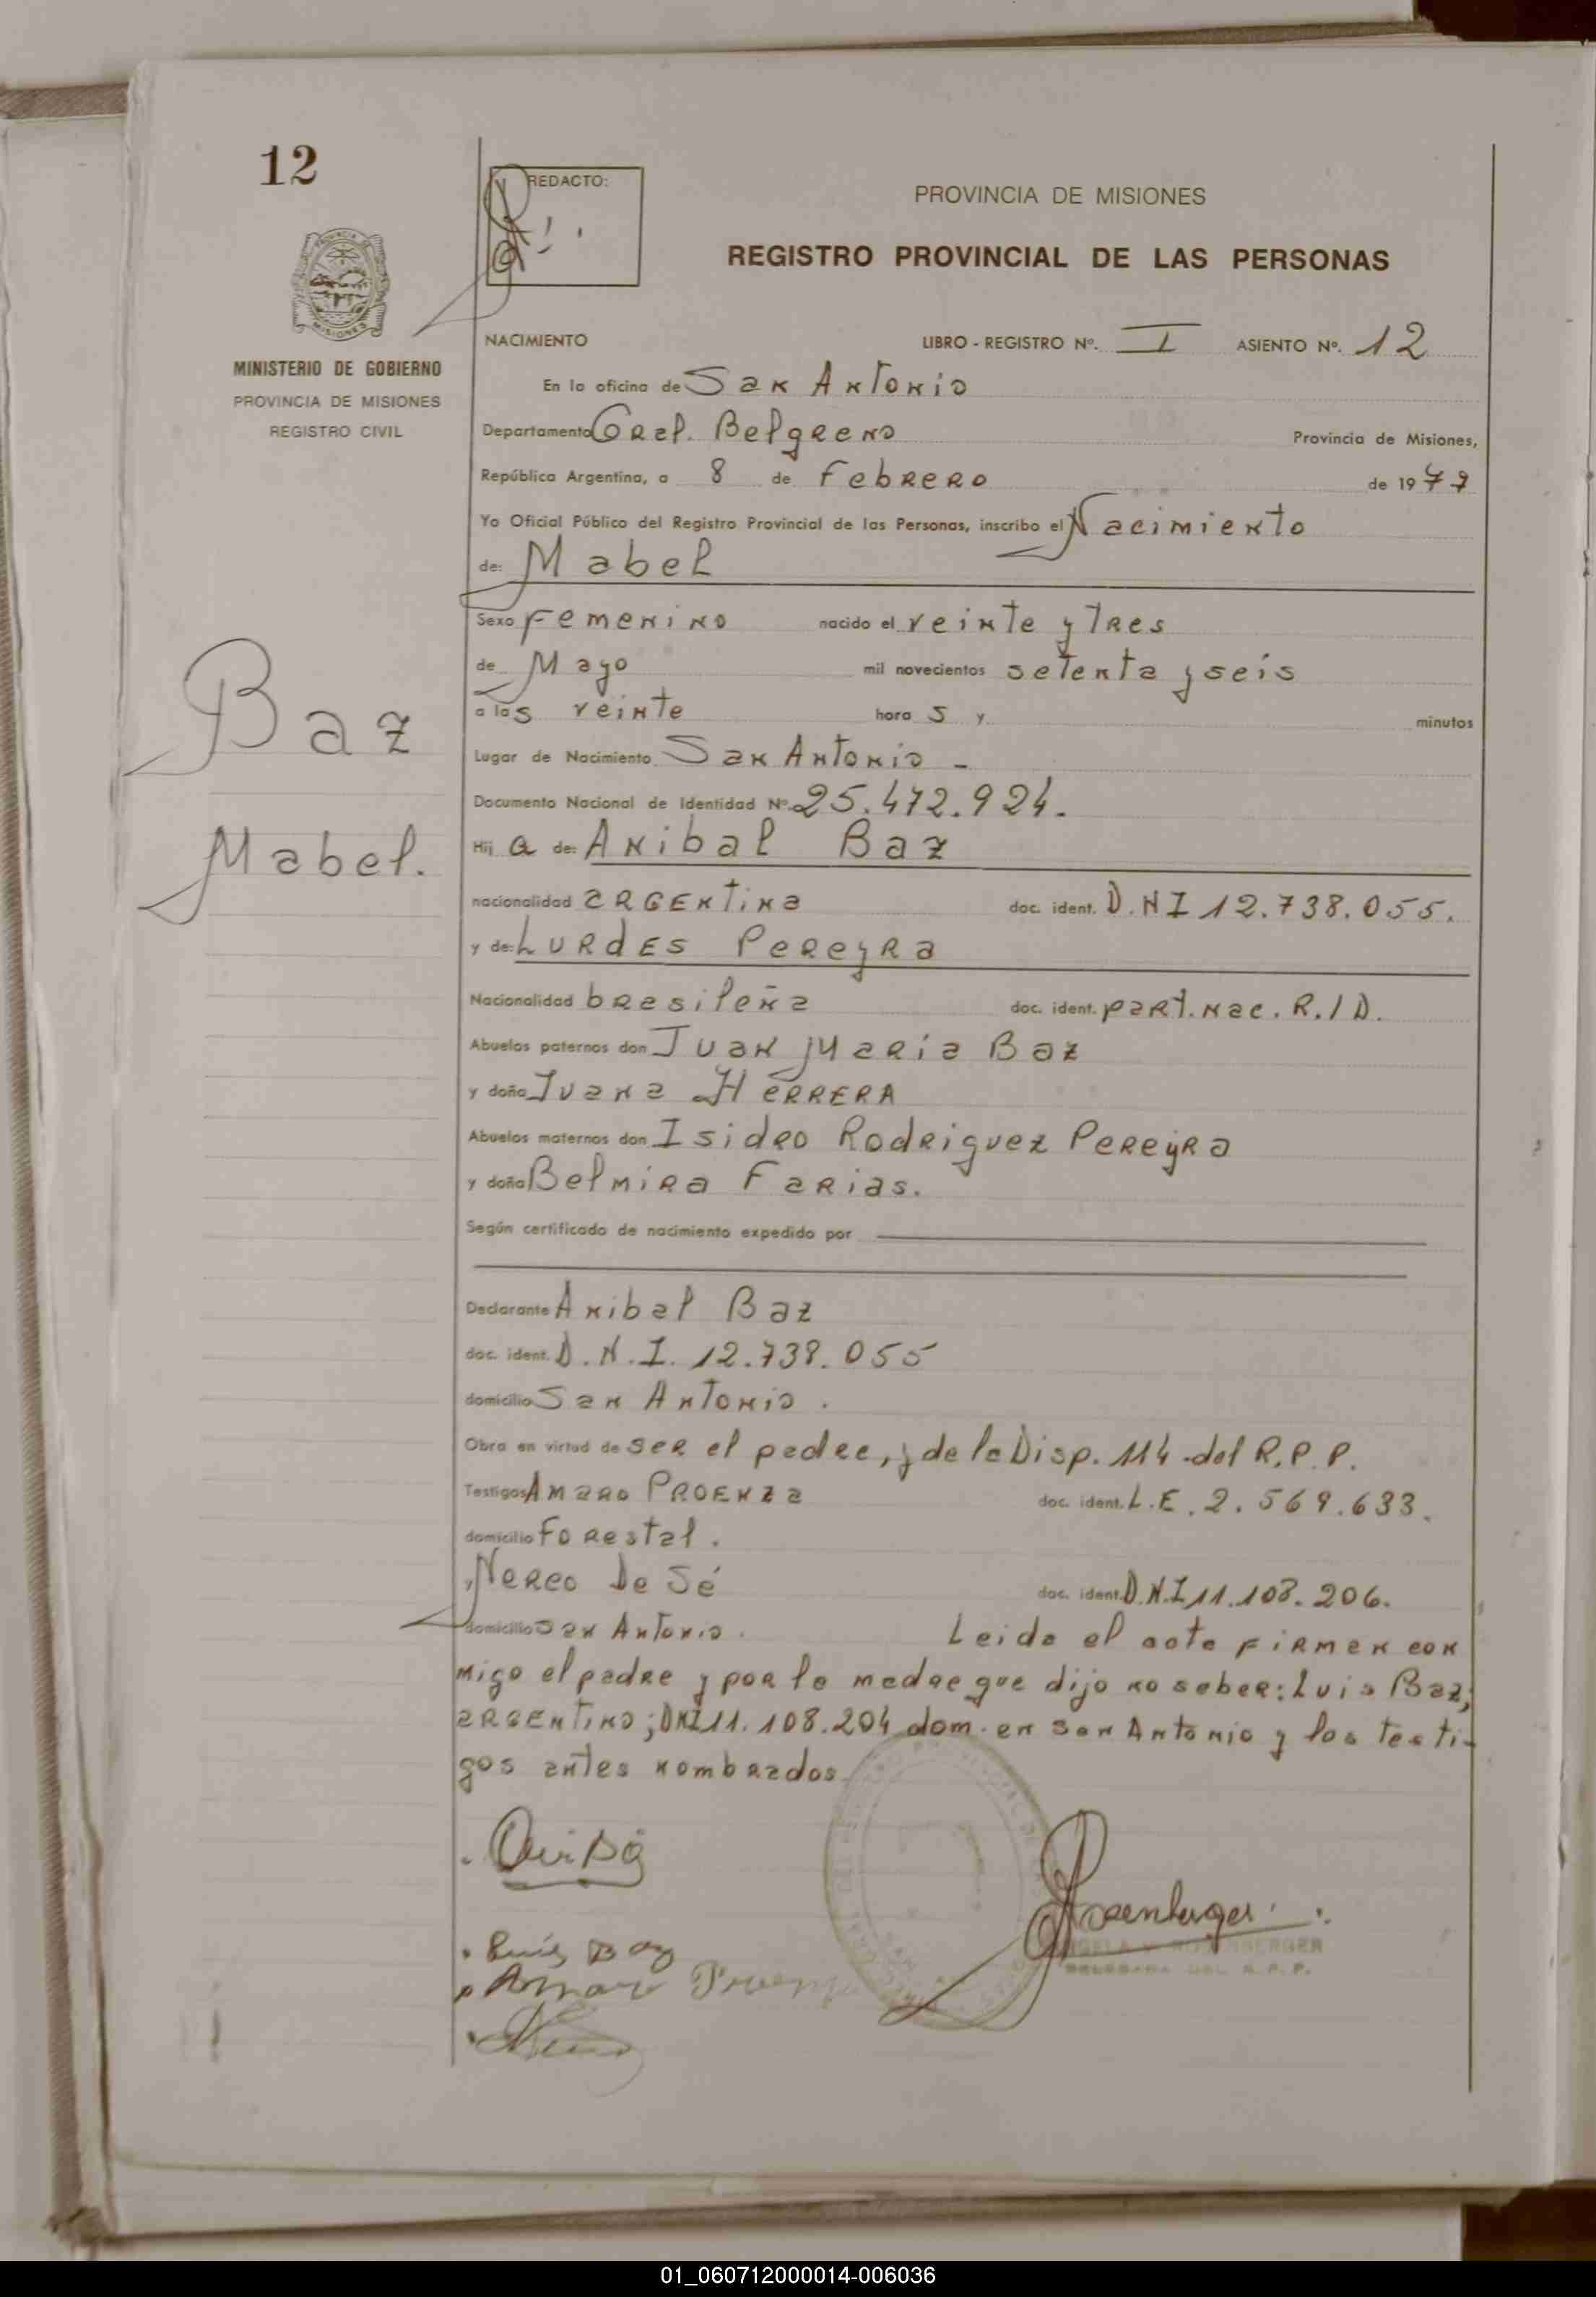 12
REDACTO:
PROVINCIA DE MISIONES
REGISTRO PROVINCIAL DE LAS PERSONAS
MINISTERIO DE GOBIERNO
PROVINCIA DE MISIONES
REGISTRO CIVIL
NACIMIENTO LIBRO - REGISTRO Nº. I ASIENTO Nº. 12
En la oficina de San Antonio
Departamento Gral. Belgrano Provincia de Misiones,
República Argentina, a 8 de Febrero de 1977
Yo Oficial Público del Registro Provincial de las Personas, inscribo el Nacimiento
de: Mabel
Sexo Femenino nacido el veinte y Tres
de Mayo mil novecientos setenta y seis
a las veinte hora s y minutos
Baz
Lugar de Nacimiento San Antonio -
Documento Nacional de Identidad Nº. 25.472.924.
Mabel.
Hij a de: Anibal Baz
nacionalidad argentina doc. ident. D.N I 12.738.055.
y de: Lurdes Pereyra
Nacionalidad brasileña doc. ident. part. nac. R./D.
Abuelos paternos don Juan Maria Baz
y doña Juana Herrera
Abuelos maternos don Isidro Rodriguez Pereyra
y doña Belmira Farias.
Según certificado de nacimiento expedido por
Declarante Anibal Baz
doc. ident. D.N.I. 12.738.055
domicilio San Antonio.
Obra en virtud de ser el padre, y de la Disp. 114 del R.P.P.
Testigos Amaro Proenza doc. ident. L.E. 2.569.633.
domicilio Forestal.
y Nereo De Sé doc. ident. D.N.I 11.108.206.
domicilio San Antonio. Leida el acta firman con
migo el padre y por la madre que dijo no saber: Luis Baz,
argentino; DNI 11.108.204 dom. en San Antonio y los testi-
gos antes nombrados.
Luis Baz
Amaro Proenza
Rosenberger
DELEGADA DEL R.P.P.
01_060712000014-006036